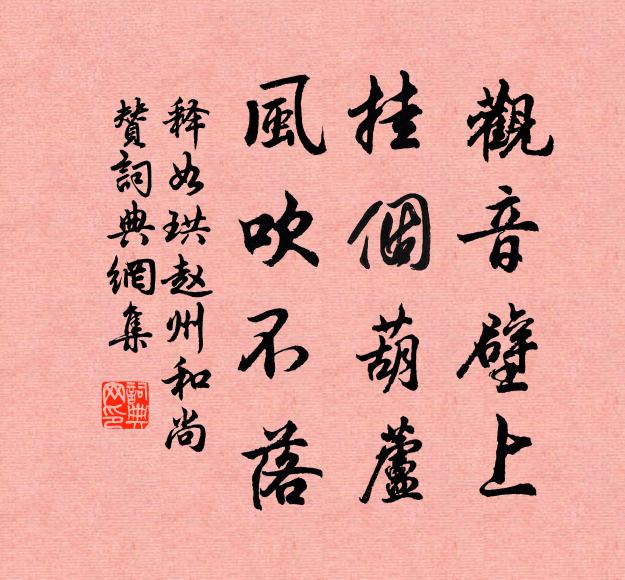 觀音壁上
挂個葫蘆
風吹不落
释如珙赵州和尚
贊詞典網集
詞典
网印